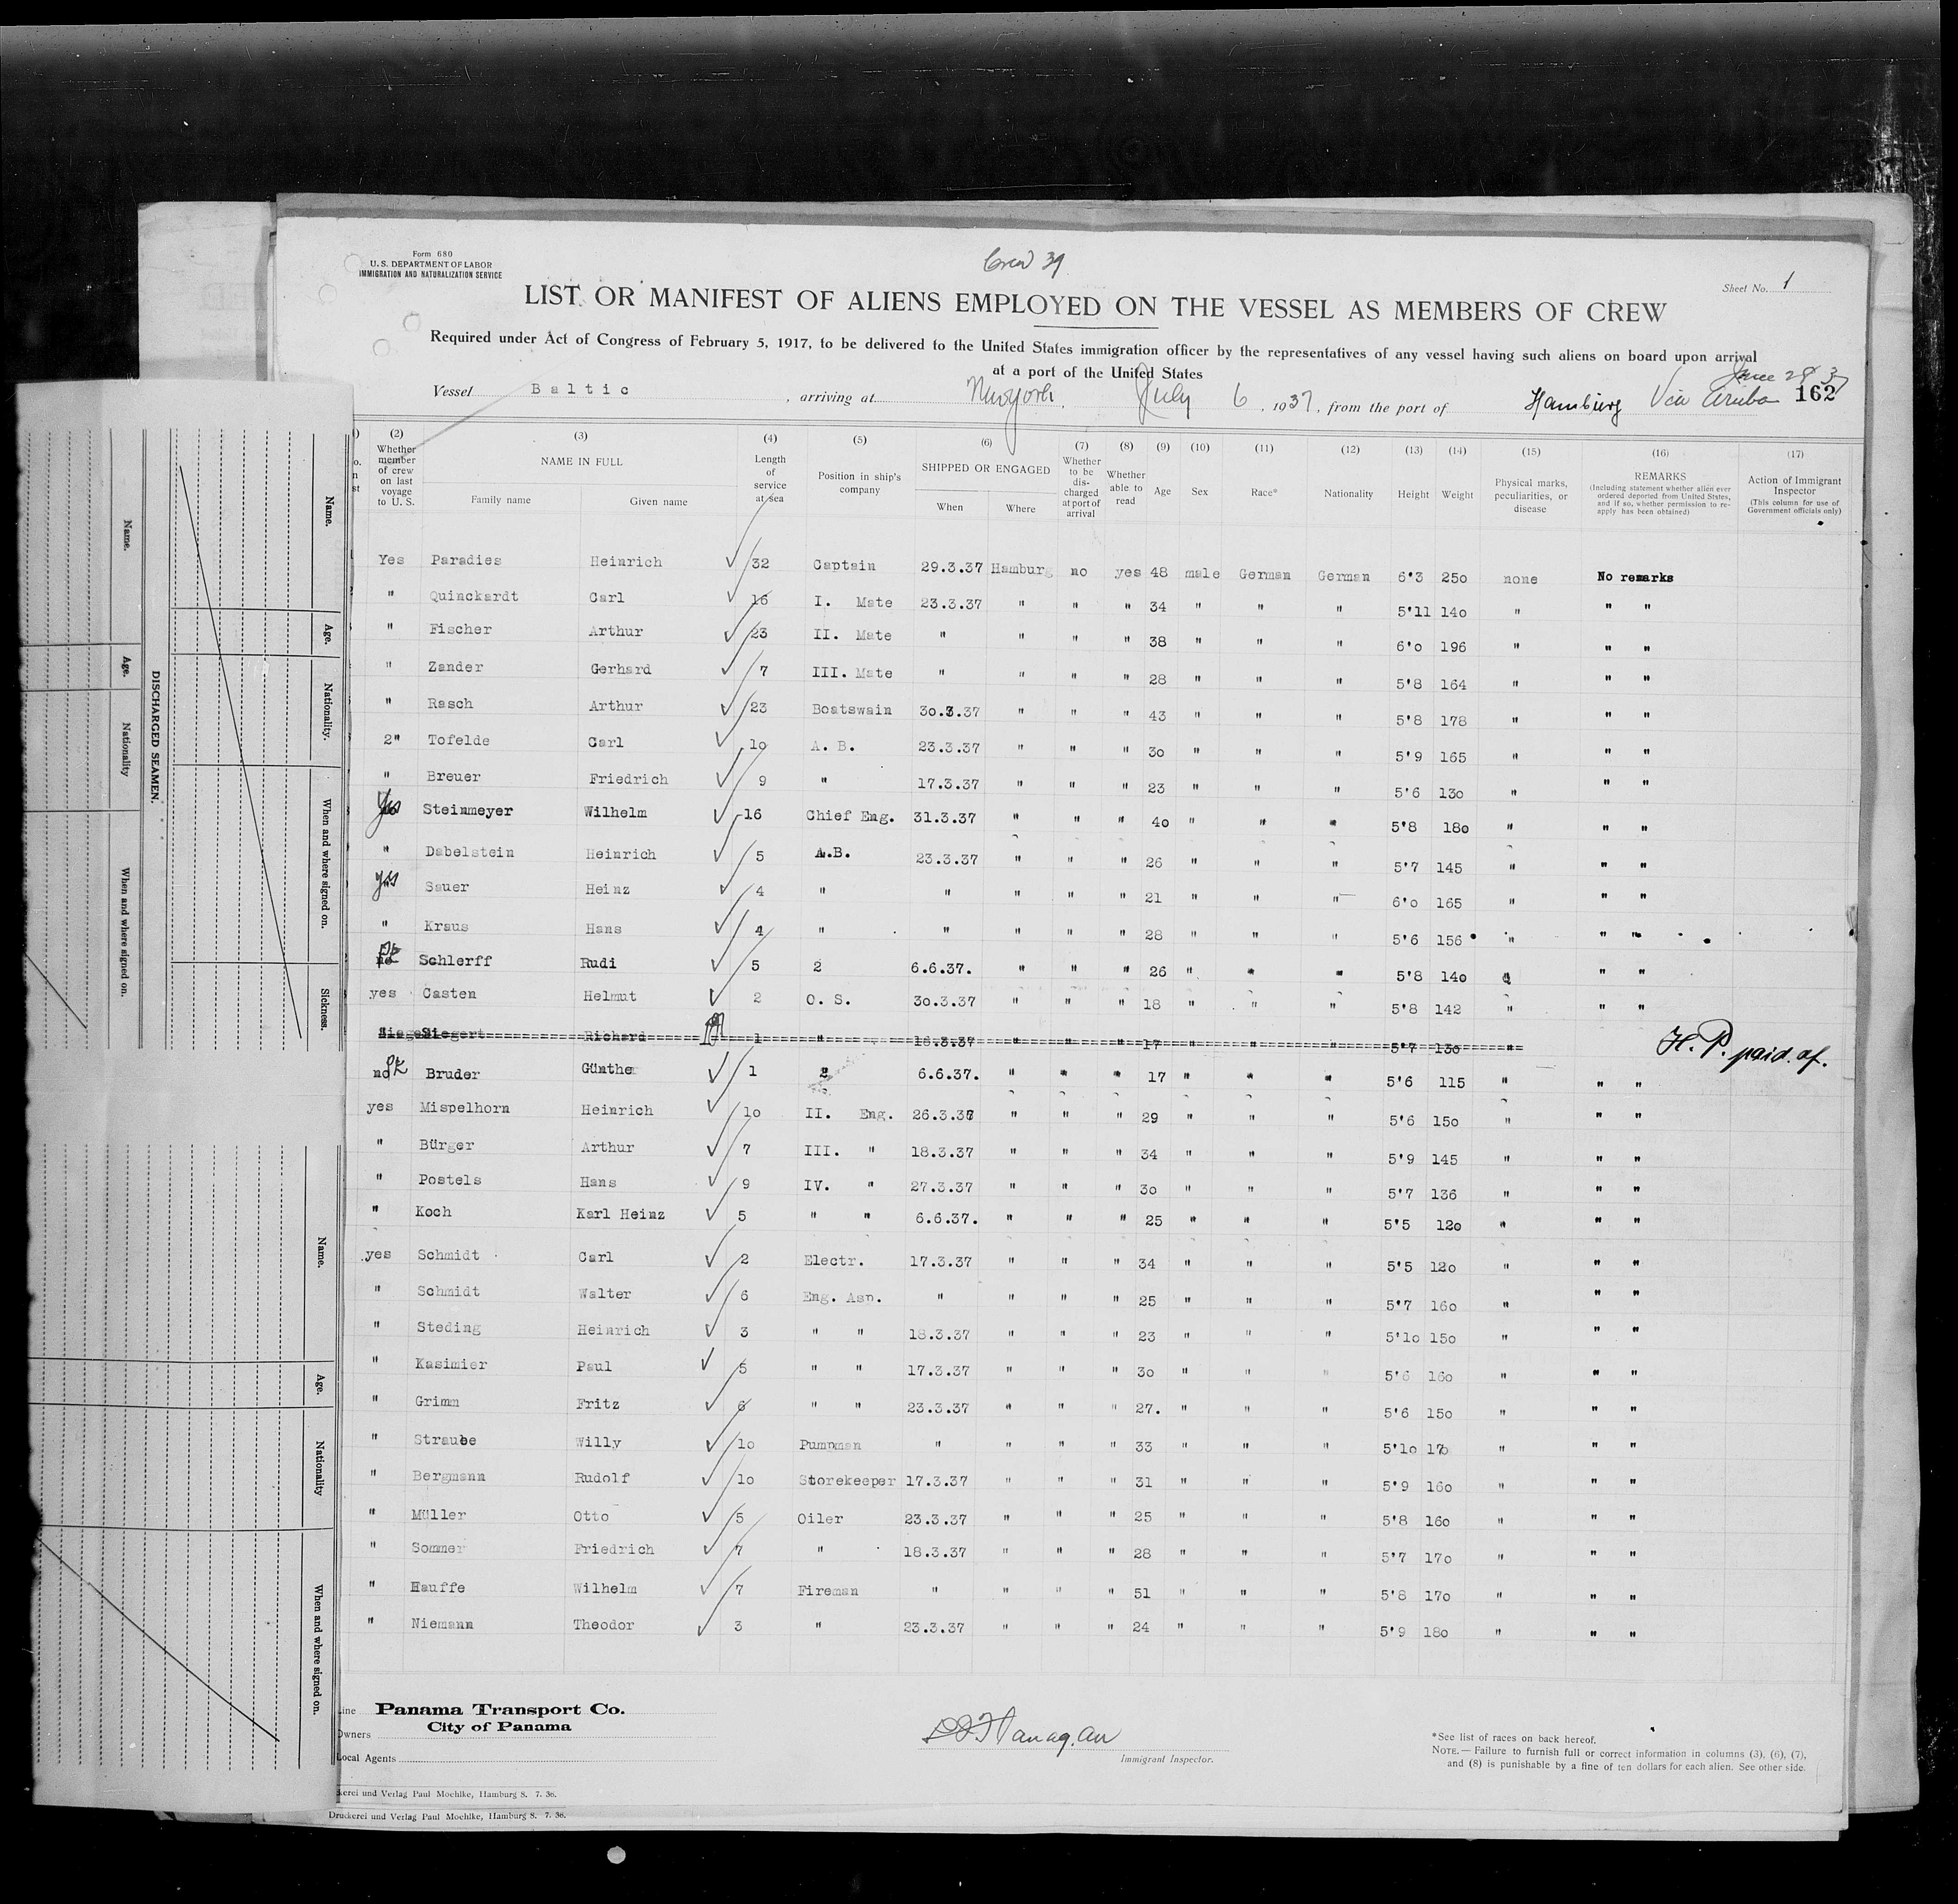 Form 680
U. S. DEPARTMENT OF LABOR
IMMIGRATION AND NATURALIZATION SERVICE
Crew 39
Sheet No. 1
LIST OR MANIFEST OF ALIENS EMPLOYED ON THE VESSEL AS MEMBERS OF CREW
Required under Act of Congress of February 5, 1917, to be delivered to the United States immigration officer by the representatives of any vessel having such aliens on board upon arrival
at a port of the United States
June 28 37
Vessel Baltic, arriving at Newyork, July 6, 1937, from the port of Hamburg Via Aruba 162
(2) (3) (4) (5) (6) (7) (8) (9) (10) (11) (12) (13) (14) (15) (16) (17)
Whether member of crew on last voyage to U. S. NAME IN FULL Family name Given name Length of service at sea Position in ship's company SHIPPED OR ENGAGED When Where Whether to be discharged at port of arrival Whether able to read Age Sex Race* Nationality Height Weight Physical marks, peculiarities, or disease REMARKS (Including statement whether alien ever ordered deported from United States, and if so, whether permission to re-apply has been obtained) Action of Immigrant Inspector (This column for use of Government officials only)
Yes Paradies Heinrich 32 Captain 29.3.37 Hamburg no yes 48 male German German 6'3 250 none No remarks
" Quinckardt Carl 16 I. Mate 23.3.37 " " " 34 " " " 5'11 140 " " "
" Fischer Arthur 23 II. Mate " " " " 38 " " " 6'0 196 " " "
" Zander Gerhard 7 III. Mate " " " " 28 " " " 5'8 164 " " "
" Rasch Arthur 23 Boatswain 30.3.37 " " " 43 " " " 5'8 178 " " "
2" Tofelde Carl 10 A. B. 23.3.37 " " " 30 " " " 5'9 165 " " "
" Breuer Friedrich 9 " 17.3.37 " " " 23 " " " 5'6 130 " " "
Yes Steinmeyer Wilhelm 16 Chief Eng. 31.3.37 " " " 40 " " " 5'8 180 " " "
" Dabelstein Heinrich 5 A.B. 23.3.37 " " " 26 " " " 5'7 145 " " "
yes Sauer Heinz 4 " " " " " 21 " " " 6'0 165 " " "
" Kraus Hans 4 " " " " " 28 " " " 5'6 156 " " "
no Schlerff Rudi 5 2 6.6.37. " " " 26 " " " 5'8 140 " " "
yes Casten Helmut 2 O. S. 30.3.37 " " " 18 " " " 5'8 142 " " "
Siegert Richard 1 " 18.3.37 " " " 17 " " " 5'7 130 " H. P. paid. of.
no Bruder Günther 1 2 6.6.37. " " " 17 " " " 5'6 115 " " "
yes Mispelhorn Heinrich 10 II. Eng. 26.3.37 " " " 29 " " " 5'6 150 " " "
" Bürger Arthur 7 III. " 18.3.37 " " " 34 " " " 5'9 145 " " "
" Postels Hans 9 IV. " 27.3.37 " " " 30 " " " 5'7 136 " " "
" Koch Karl Heinz 5 " " 6.6.37. " " " 25 " " " 5'5 120 " " "
yes Schmidt Carl 2 Electr. 17.3.37 " " " 34 " " " 5'5 120 " " "
" Schmidt Walter 6 Eng. Asp. " " " " 25 " " " 5'7 160 " " "
" Steding Heinrich 3 " " 18.3.37 " " " 23 " " " 5'10 150 " " "
" Kasimier Paul 5 " " 17.3.37 " " " 30 " " " 5'6 160 " " "
" Grimm Fritz 6 " " 23.3.37 " " " 27. " " " 5'6 150 " " "
" Straube Willy 10 Pumpman " " " " 33 " " " 5'10 170 " " "
" Bergmann Rudolf 10 Storekeeper 17.3.37 " " " 31 " " " 5'9 160 " " "
" Müller Otto 5 Oiler 23.3.37 " " " 25 " " " 5'8 160 " " "
" Sommer Friedrich 7 " 18.3.37 " " " 28 " " " 5'7 170 " " "
" Hauffe Wilhelm 7 Fireman " " " " 51 " " " 5'8 170 " " "
" Niemann Theodor 3 " 23.3.37 " " " 24 " " " 5'9 180 " " "
Line Panama Transport Co.
Owners City of Panama
Local Agents
Immigrant Inspector.
*See list of races on back hereof.
NOTE.—Failure to furnish full or correct information in columns (3), (6), (7),
and (8) is punishable by a fine of ten dollars for each alien. See other side.
kerei und Verlag Paul Moehlke, Hamburg 8. 7. 36.
Druckerei und Verlag Paul Moehlke, Hamburg 8. 7. 36.
DISCHARGED SEAMEN.
Name. Age. Nationality When and where signed on.
Name. Age. Nationality. When and where signed on. Sickness.
Name. Age. Nationality When and where signed on.